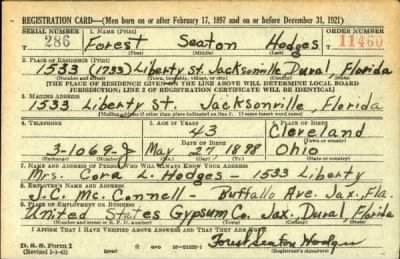 REGISTRATION CARD—(Men born on or after February 17, 1897 and on or before December 31, 1921)
SERIAL NUMBER 1. NAME (Print) ORDER NUMBER
286 Forest Seaton Hodges 11460
(First) (Middle) (Last)
2. PLACE OF RESIDENCE (Print)
1533 (1733) Liberty St. Jacksonville Duval, Florida
(Number and street) (Town, township, village, or city) (County) (State)
[THE PLACE OF RESIDENCE GIVEN ON THE LINE ABOVE WILL DETERMINE LOCAL BOARD
JURISDICTION; LINE 2 OF REGISTRATION CERTIFICATE WILL BE IDENTICAL]
3. MAILING ADDRESS
1533 Liberty St. Jacksonville, Florida
[Mailing address if other than place indicated on line 2. If same insert word same]
4. TELEPHONE 5. AGE IN YEARS 6. PLACE OF BIRTH
43 Cleveland
DATE OF BIRTH (Town or county)
3-1069-J May 27 1898 Ohio
(Exchange) (Number) (Mo.) (Day) (Yr.) (State or country)
7. NAME AND ADDRESS OF PERSON WHO WILL ALWAYS KNOW YOUR ADDRESS
Mrs. Cora L. Hodges - 1533 Liberty
8. EMPLOYER'S NAME AND ADDRESS
J.C. McConnell - Buffalo Ave. Jax., Fla.
9. PLACE OF EMPLOYMENT OR BUSINESS
United States Gypsum Co. Jax. Duval, Florida
(Number and street or R. F. D. number) (Town) (County) (State)
I AFFIRM THAT I HAVE VERIFIED ABOVE ANSWERS AND THAT THEY ARE TRUE.
D. S. S. Form 1
(Revised 1-1-42) GPO Forest Seaton Hodges
(Registrant's signature)